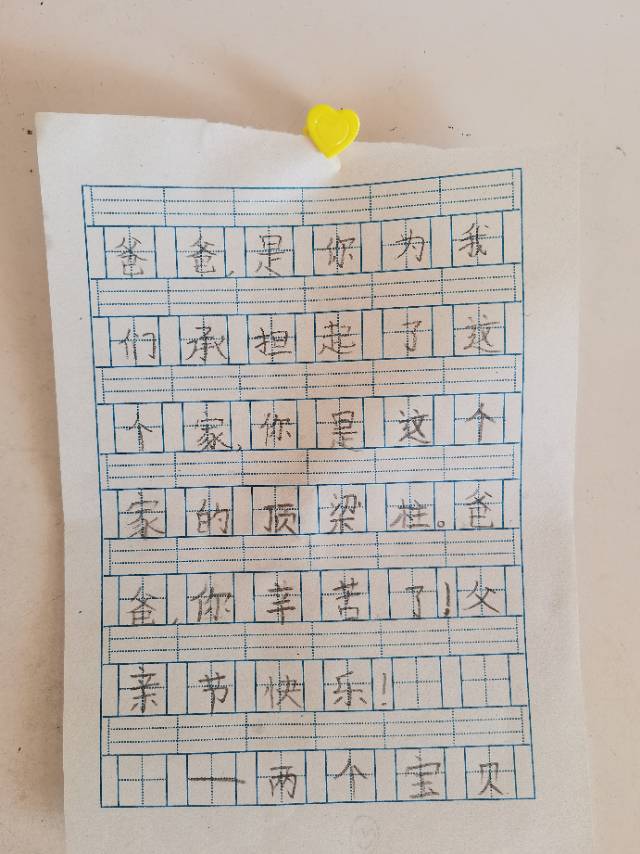 爸爸,是你为我
们承担起了这
个家,你是这个
家的顶梁柱。爸
爸,你辛苦了!父
亲节快乐!
一两个宝贝